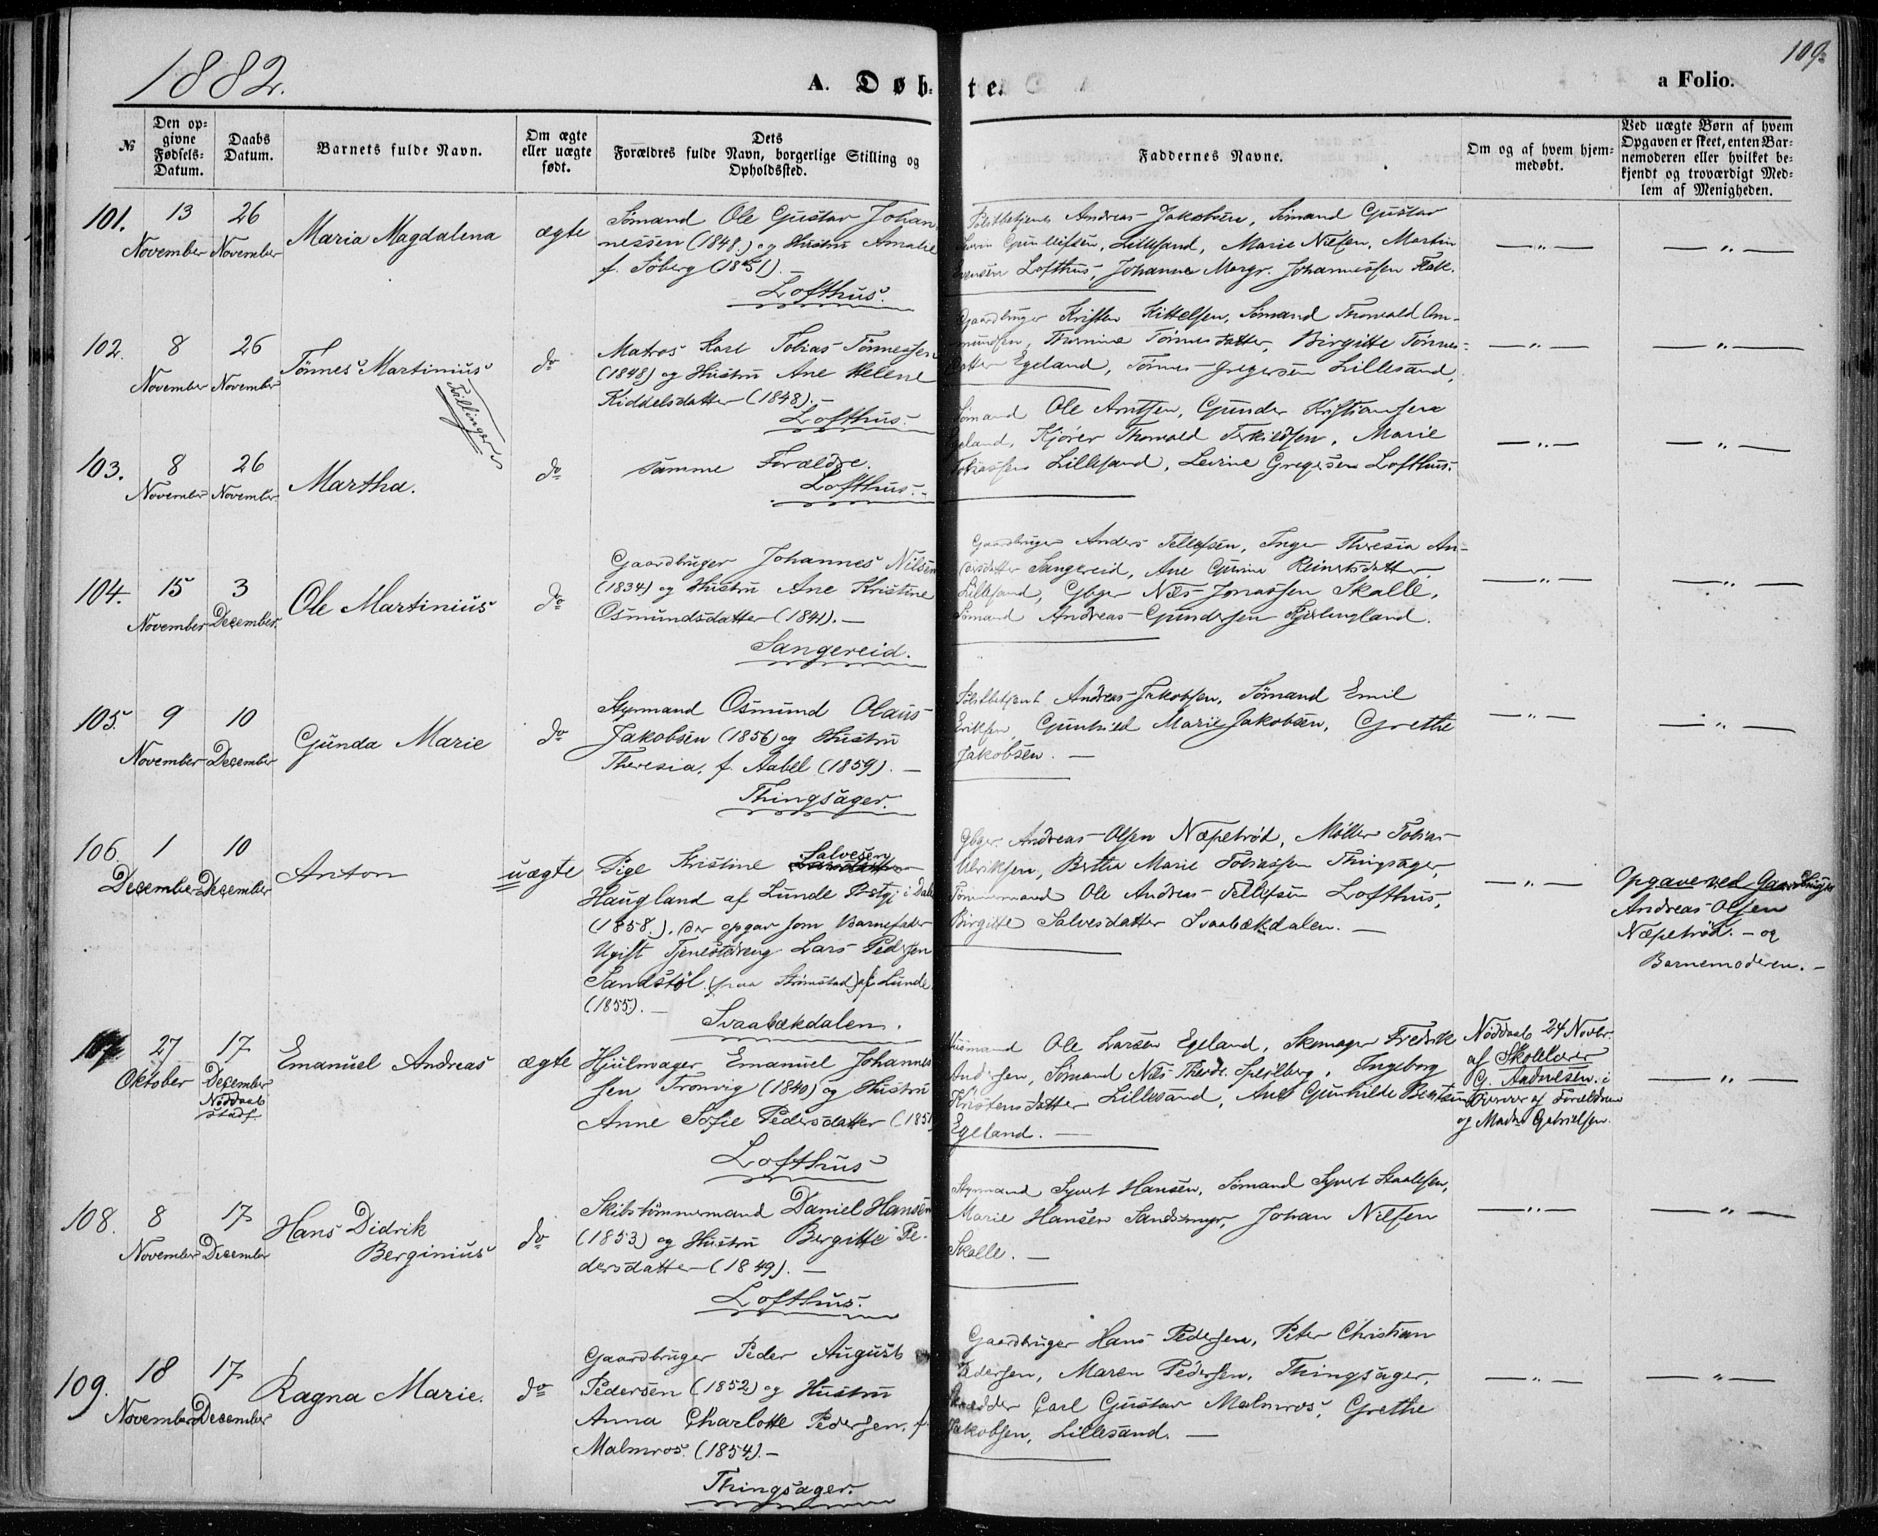 1882.
109
A. Døb-
te.
a Folio.
№
Den op-
givne
Fødsels-
Datum.
Daabs
Datum.
Barnets fulde Navn.
Om ægte
eller uægte
født.
Dets
Forældres fulde Navn, borgerlige Stilling og
Opholdssted.
Faddernes Navne.
Om og af hvem hjem-
medøbt.
Ved uægte Børn af hvem
Opgaven er skeet, enten Bar-
nemoderen eller hvilket be-
kjendt og troværdigt Med-
lem af Menigheden.
101.
13
November
26
November
Maria Magdalena
ægte
Sømand Ole Gustav Johan
nessen (1848.) og Hustru Amalie
f. Söberg (1851).
Lofthus.
Andreas Jakobsen, Sömand Gustav
Gunleifsen, Lillesand, Marie Nilsen, Martin
Lofthus, Johanne Margr. Johannessen
— " —
— " —
102.
8
November
26
November
Tönnes Martinius
Tvillinger
do
Matros Karl Tobias Tönnessen
(1848) og Hustru Ane Helene
Kiddelsdatter (1848). —
Lofthus.
Gaardbruger Kristen Kittelsen, Sömand Thorvald Om-
mundsen, Tönnesdatter, Birgitte Tönnes-
datter Egeland, Tönnes Gregersen Lillesand,
— " —
— " —
103.
8
November
26
November
Martha.
do
samme Forældre.
Lofthus. —
Sömand Ole Arntsen, Gunder Kristiansen
Egeland, Kjörer Thorvald Terkildsen, Marie
Tobiassen Lillesand, Levine Gregersen Lofthus.
— " —
— " —
104.
15
November
3
December.
Ole Martinius
do
Gaardbruger Johannes Nilsen
(1834) og Hustru Ane Kristine
Osmundsdatter (1841). —
Sangereid.
Gaardbruger Anders Tellefsen, Inger Theresia An-
dersdatter Sangereid, Ane Gurine Reinertsdatter,
Lillesand, Gbger Nils Jonassen Skalle,
Sömand Andreas Gundersen Kjerlingland.
— " —
— " —
105.
9
November
10
December
Gunda Marie
do
Styrmand Osmund Olaus
Jakobsen (1856) og Hustru
Theresia, f. Aabel (1859). —
Thingsager.
Politibetjent Andreas Jakobsen, Sömand Emil
Eriksen, Gunhild Marie Jakobsen, Grethe
Jakobsen. —
— " —
— " —
106.
1
December
10
December
Anton
uægte
Salvesen
Pige Kristine
Haugland af Lunde Pstgj. i Dal
(1858.). Der opgav som Barnefader
Ugift Tjenestedreng Lars Pedersen
Sandstöl (paa Strömstad) af Lunde
(1855). —
Svaabækdalen.
Gbger. Andreas Olsen Næpetröd, Möller Tobias
Ulriksen, Bertha Marie Tobiassen Thingsager,
Tömmermand Ole Andreas Tellefsen Lofthus,
Birgitte Salvesdatter Svaabækdalen. —
— " —
Opgave ved Gaardbruger
Andreas Olsen
Næpetröd. — og
Barnemoderen. —
107.
27
Oktober
17
December
Nöddaab
stadf.
Emanuel Andreas
ægte
Hjulmager Emanuel Johannes
sen Tronvig (1840) og Hustru
Anne Sofie Pedersdatter (1851
Lofthus
Husmand Ole Larsen Egeland, Skomager Fredrik
Andersen, Sömand Nils Thedr. Speilberg, Ingeborg
Kristensdatter Lillesand, Ane Gunhilde Bentsen
Egeland. —
Nöddaab 24 Novbr.
af Skolelærer
G. Aadnesen i
Nærvær af Forældrene
og Madm Gabrielsen.
— " —
108.
8
November
17
December
Hans Didrik
Berginius
do
Skibstömmermand Daniel Hansen
(1853) og Hustru Bergitte Pe-
dersdatter (1849). —
Lofthus.
Styrmand Syvert Hansen, Sömand Syvert Staalesen,
Marie Hansen Sandsmyr, Johan Nilsen
Skalle. —
— " —
— " —
109.
18
November
17
December
Ragna Marie.
do
Gaardbruger Peder August
Pedersen (1852) og Hustru
Anna Charlotte Pedersen, f.
Malmros (1854). —
Thingsager.
Gaardbruger Hans Pedersen, Peter Christian
Pedersen, Maren Pedersen, Thingsager,
Skrædder Carl Gustav Malmros, Grethe
Jakobsen, Lillesand. —
— " —
— " —